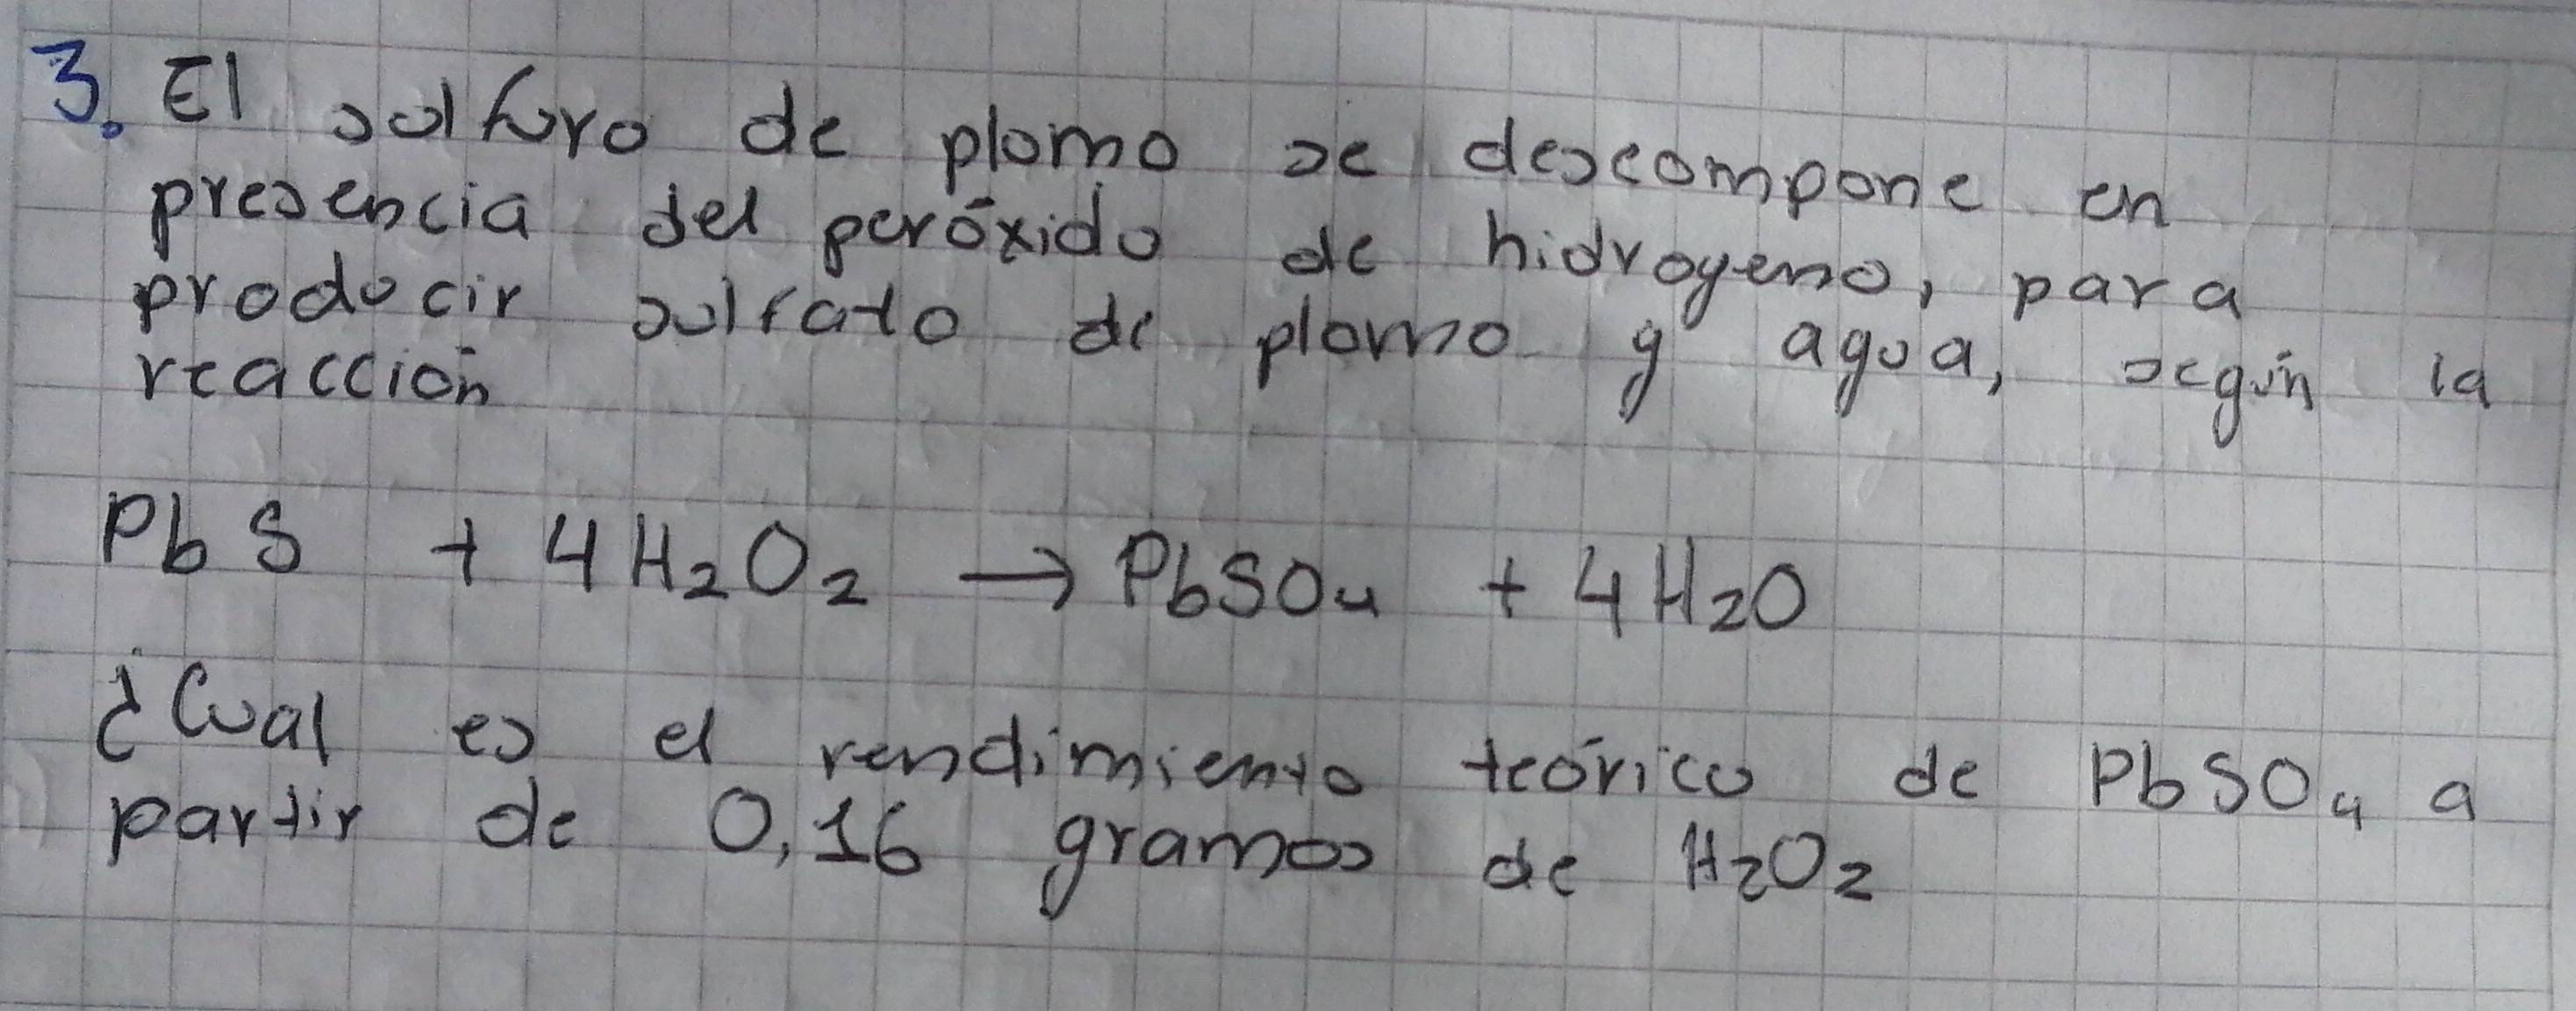 3. El sulfuro de plomo se descompone en
presencia del peróxido de hidrogeno, para
producir sulfato de plomo y agua, según la
reacción
PbS + 4H₂O₂ → PbSO₄ + 4H₂O
¿Cual es el rendimiento teórico de PbSO₄ a
partir de 0,16 gramos de H₂O₂